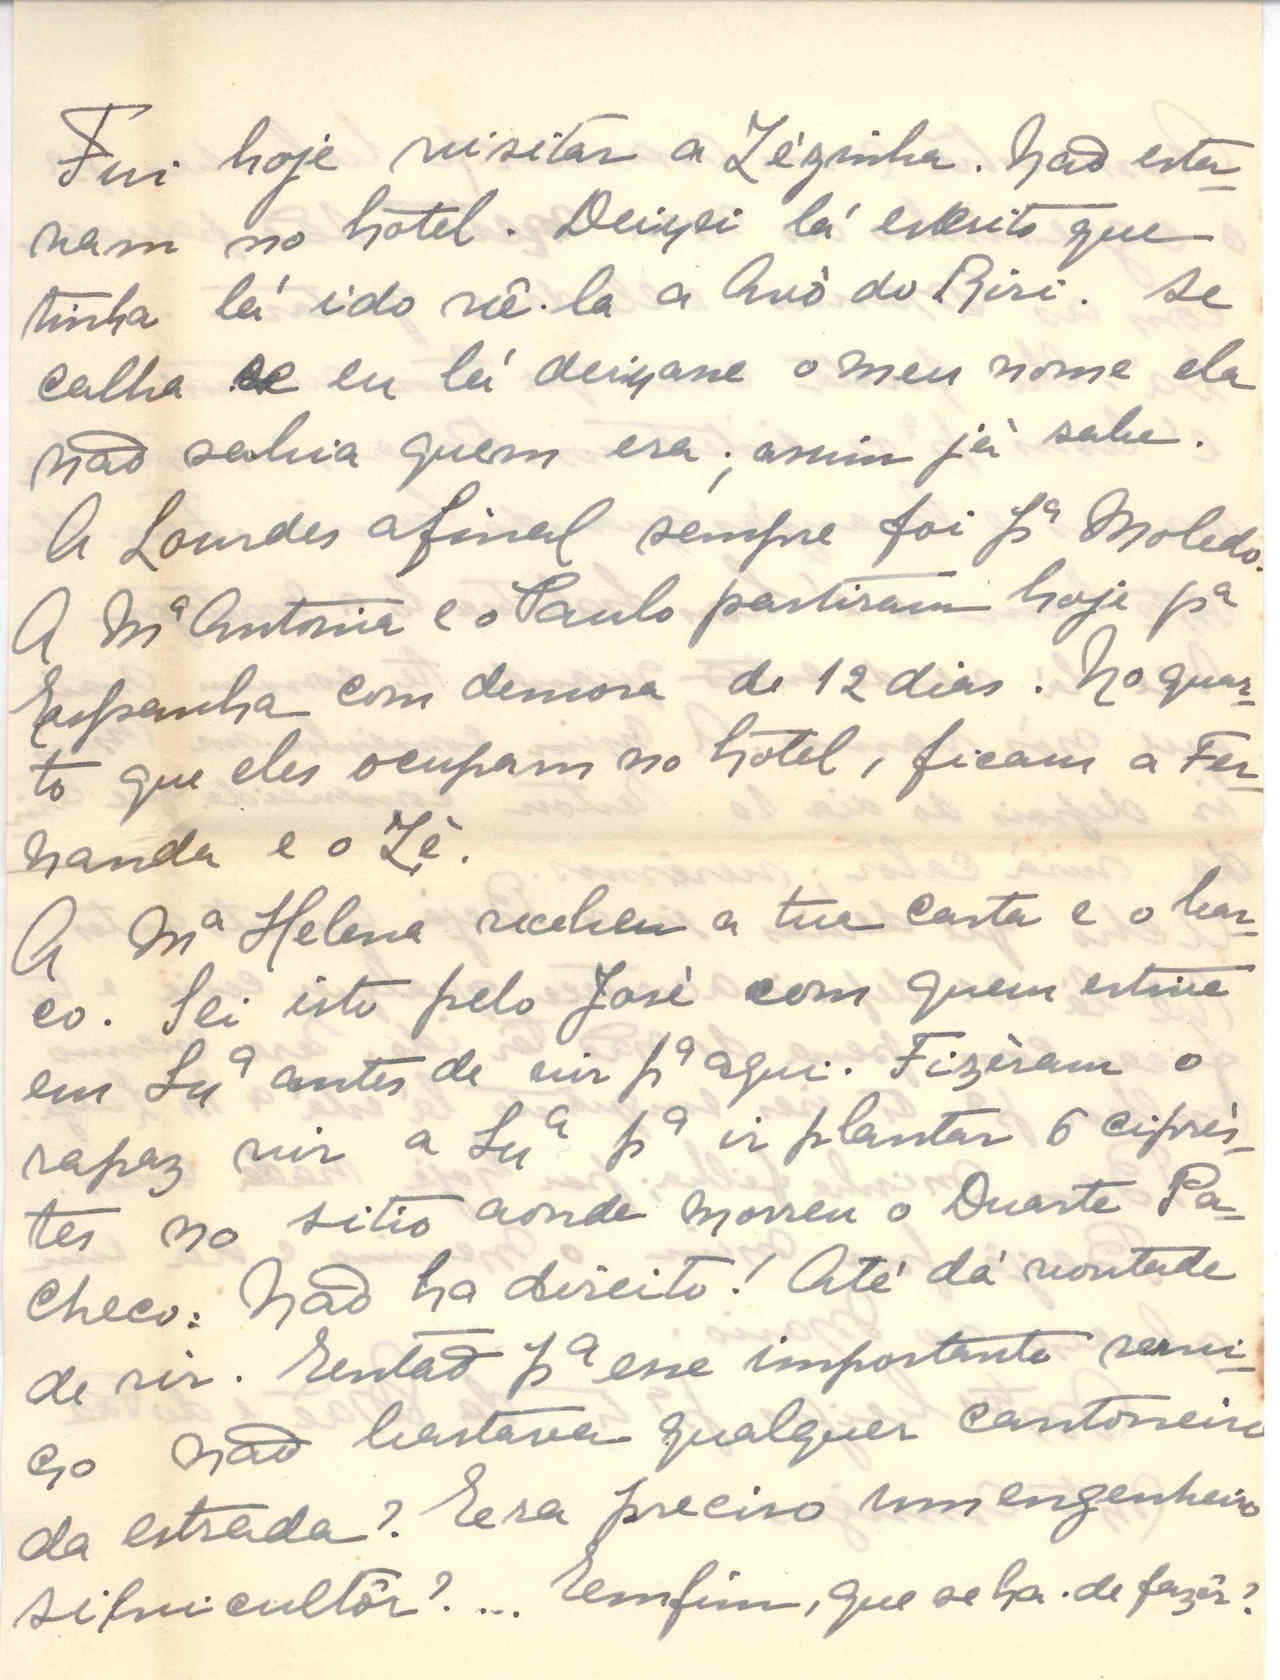 Fui hoje visitar a Zézinha. Não esta-
vam no hotel. Deixei lá escrito que
tinha lá ido vê-la a Avó do Riri. Se
calha se eu lá deixasse o meu nome ela
não sabia quem era; assim já sabe.
A Lourdes afinal sempre foi pª Moledo.
A Mª Antonia e o Paulo partiram hoje pª
Espanha com demora de 12 dias. No quar-
to que eles ocupam no hotel, ficam a Fer-
nanda e o Zé.
A Mª Helena recebeu a tua carta e o bar-
co. Sei isto pelo José com quem estive
em Lxª antes de vir pª aqui. Fizéram o
rapaz vir a Lxª pª ir plantar 6 ciprés-
tes no sitio aonde morreu o Duarte Pa-
checo. Não ha direito! Até dá vontade
de rir. Então pª esse importante servi-
ço não bastava qualquer cantoneiro
da estrada? Era preciso um engenheiro
silvicultôr?... Emfim, que se ha-de fazêr?